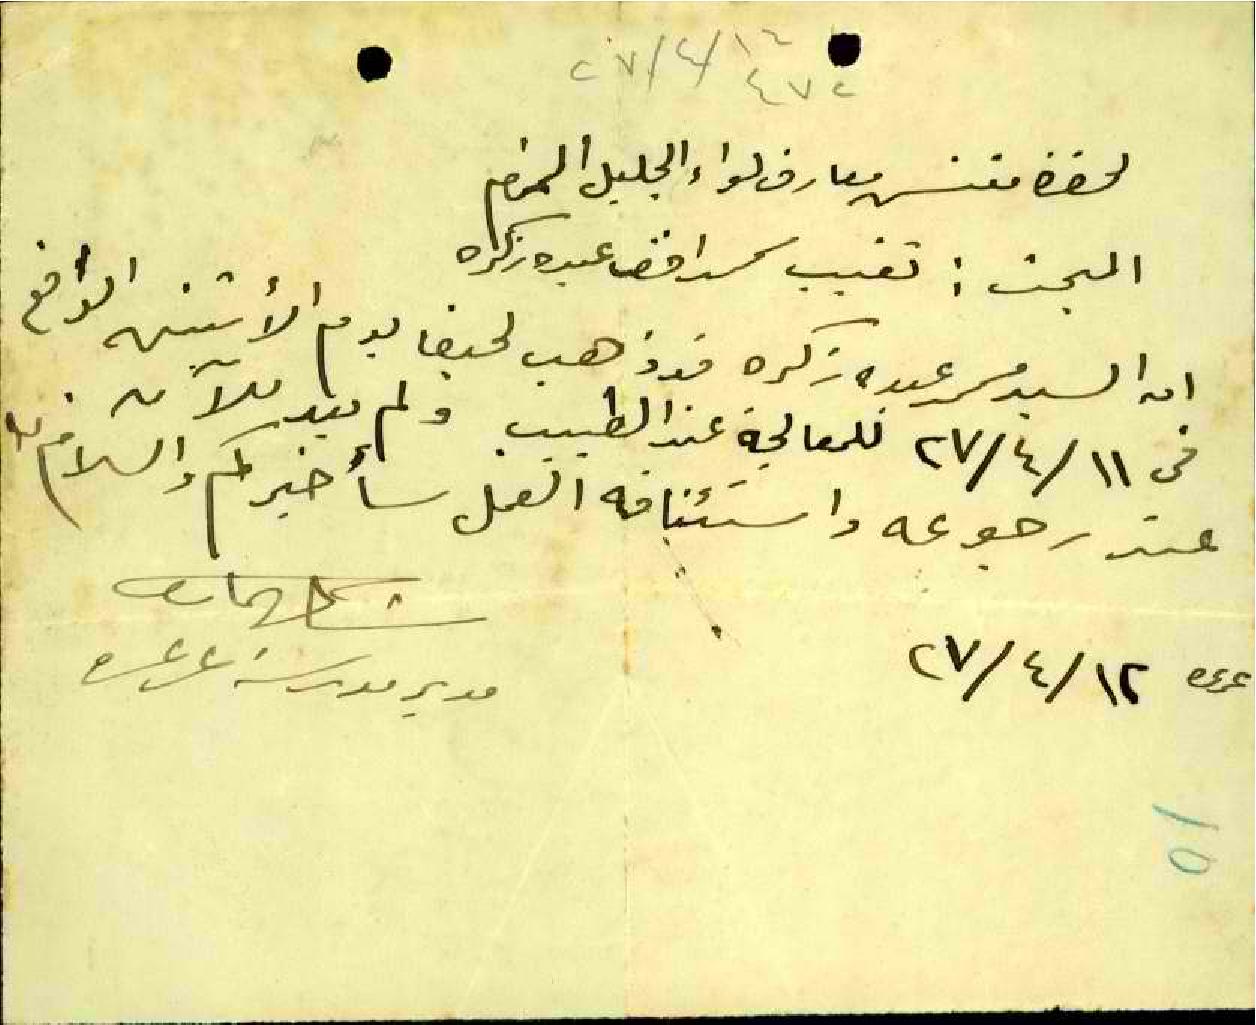 ٢٧/٤/١٢
٤٧٢
لحضرة مفتش معارف لواء الجليل المحترم
البحث : تغيب محمد افندي عبده زكره
ان السيد محمد عبده زكره قد ذهب لحيفا يوم الأثنين الواقع
في ٢٧/٤/١١ للمعالجة عند الطبيب ولم يعد للآن
عند رجوعه واستئنافه العمل سأخبركم والسلام
مدير مدرسة عرعره
عرعره ٢٧/٤/١٢